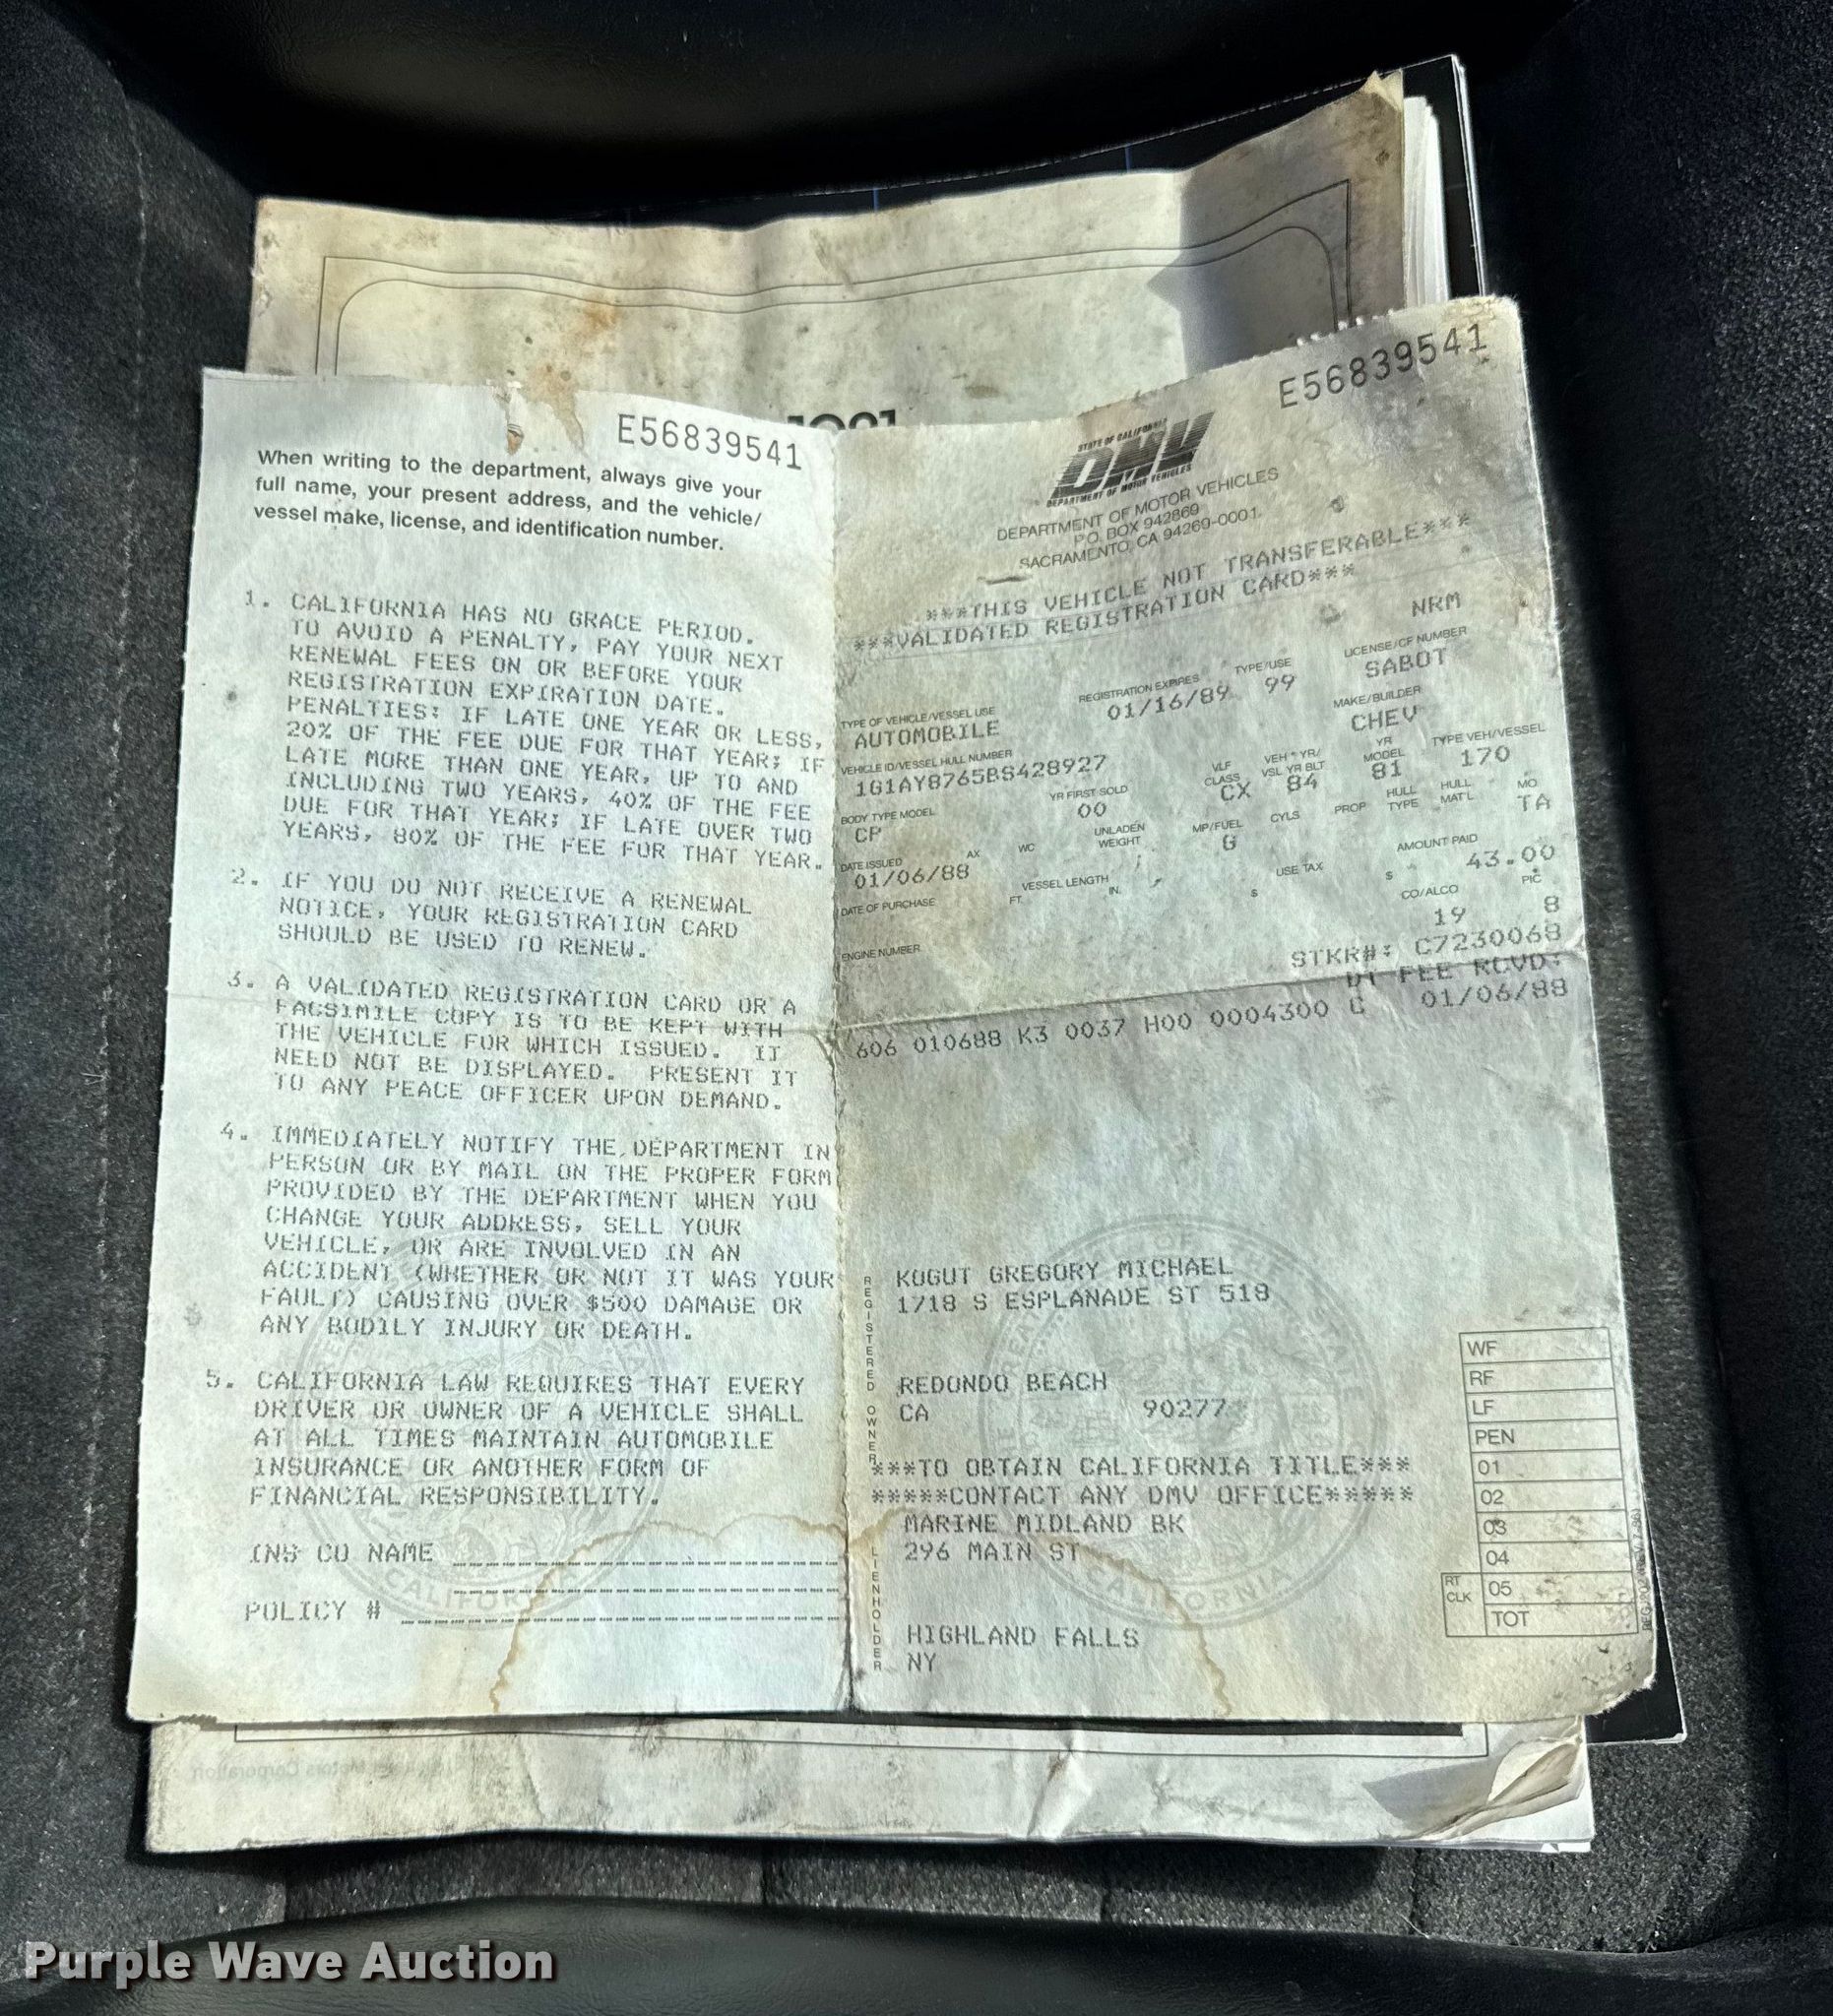 E56839541
When writing to the department, always give your
full name, your present address, and the vehicle/
vessel make, license, and identification number.
1. CALIFORNIA HAS NO GRACE PERIOD.
TO AVOID A PENALTY, PAY YOUR NEXT
RENEWAL FEES ON OR BEFORE YOUR
REGISTRATION EXPIRATION DATE.
PENALTIES: IF LATE ONE YEAR OR LESS,
20% OF THE FEE DUE FOR THAT YEAR; IF
LATE MORE THAN ONE YEAR, UP TO AND
INCLUDING TWO YEARS, 40% OF THE FEE
DUE FOR THAT YEAR; IF LATE OVER TWO
YEARS, 80% OF THE FEE FOR THAT YEAR.
2. IF YOU DO NOT RECEIVE A RENEWAL
NOTICE, YOUR REGISTRATION CARD
SHOULD BE USED TO RENEW.
3. A VALIDATED REGISTRATION CARD OR A
FACSIMILE COPY IS TO BE KEPT WITH
THE VEHICLE FOR WHICH ISSUED. IT
NEED NOT BE DISPLAYED. PRESENT IT
TO ANY PEACE OFFICER UPON DEMAND.
4. IMMEDIATELY NOTIFY THE DEPARTMENT IN
PERSON OR BY MAIL ON THE PROPER FORM
PROVIDED BY THE DEPARTMENT WHEN YOU
CHANGE YOUR ADDRESS, SELL YOUR
VEHICLE, OR ARE INVOLVED IN AN
ACCIDENT (WHETHER OR NOT IT WAS YOUR
FAULT) CAUSING OVER $500 DAMAGE OR
ANY BODILY INJURY OR DEATH.
5. CALIFORNIA LAW REQUIRES THAT EVERY
DRIVER OR OWNER OF A VEHICLE SHALL
AT ALL TIMES MAINTAIN AUTOMOBILE
INSURANCE OR ANOTHER FORM OF
FINANCIAL RESPONSIBILITY.
INS CO NAME
POLICY #
E56839541
STATE OF CALIFORNIA
DMV
DEPARTMENT OF MOTOR VEHICLES
DEPARTMENT OF MOTOR VEHICLES
P.O. BOX 942869
SACRAMENTO, CA 94269-0001
***THIS VEHICLE NOT TRANSFERABLE***
***VALIDATED REGISTRATION CARD***
NRM
TYPE OF VEHICLE/VESSEL USE REGISTRATION EXPIRES TYPE/USE LICENSE/CF NUMBER
AUTOMOBILE 01/16/89 99 SABOT
VEHICLE ID/VESSEL HULL NUMBER MAKE/BUILDER
1G1AY8765BS428927 CHEV
BODY TYPE MODEL YR FIRST SOLD VLF CLASS VEH YR/ VSL YR BLT YR MODEL TYPE VEH/VESSEL
CP 00 CX 84 81 170
DATE ISSUED AX WC UNLADEN WEIGHT MP/FUEL CYLS PROP HULL TYPE HULL MAT'L MO
01/06/88 G TA
DATE OF PURCHASE VESSEL LENGTH FT. IN. $ USE TAX $ AMOUNT PAID
43.00
ENGINE NUMBER CO/ALCO PIC
19 8
STKR#: C7230068
DT FEE RCVD:
606 010688 K3 0037 H00 0004300 C 01/06/88
REGISTERED OWNER
KOGUT GREGORY MICHAEL
1718 S ESPLANADE ST 518
REDONDO BEACH
CA 90277
***TO OBTAIN CALIFORNIA TITLE***
*****CONTACT ANY DMV OFFICE*****
LIENHOLDER
MARINE MIDLAND BK
296 MAIN ST
HIGHLAND FALLS
NY
WF
RF
LF
PEN
01
02
03
04
RT CLK 05
TOT
CALIFORNIA
CALIFORNIA
Purple Wave Auction